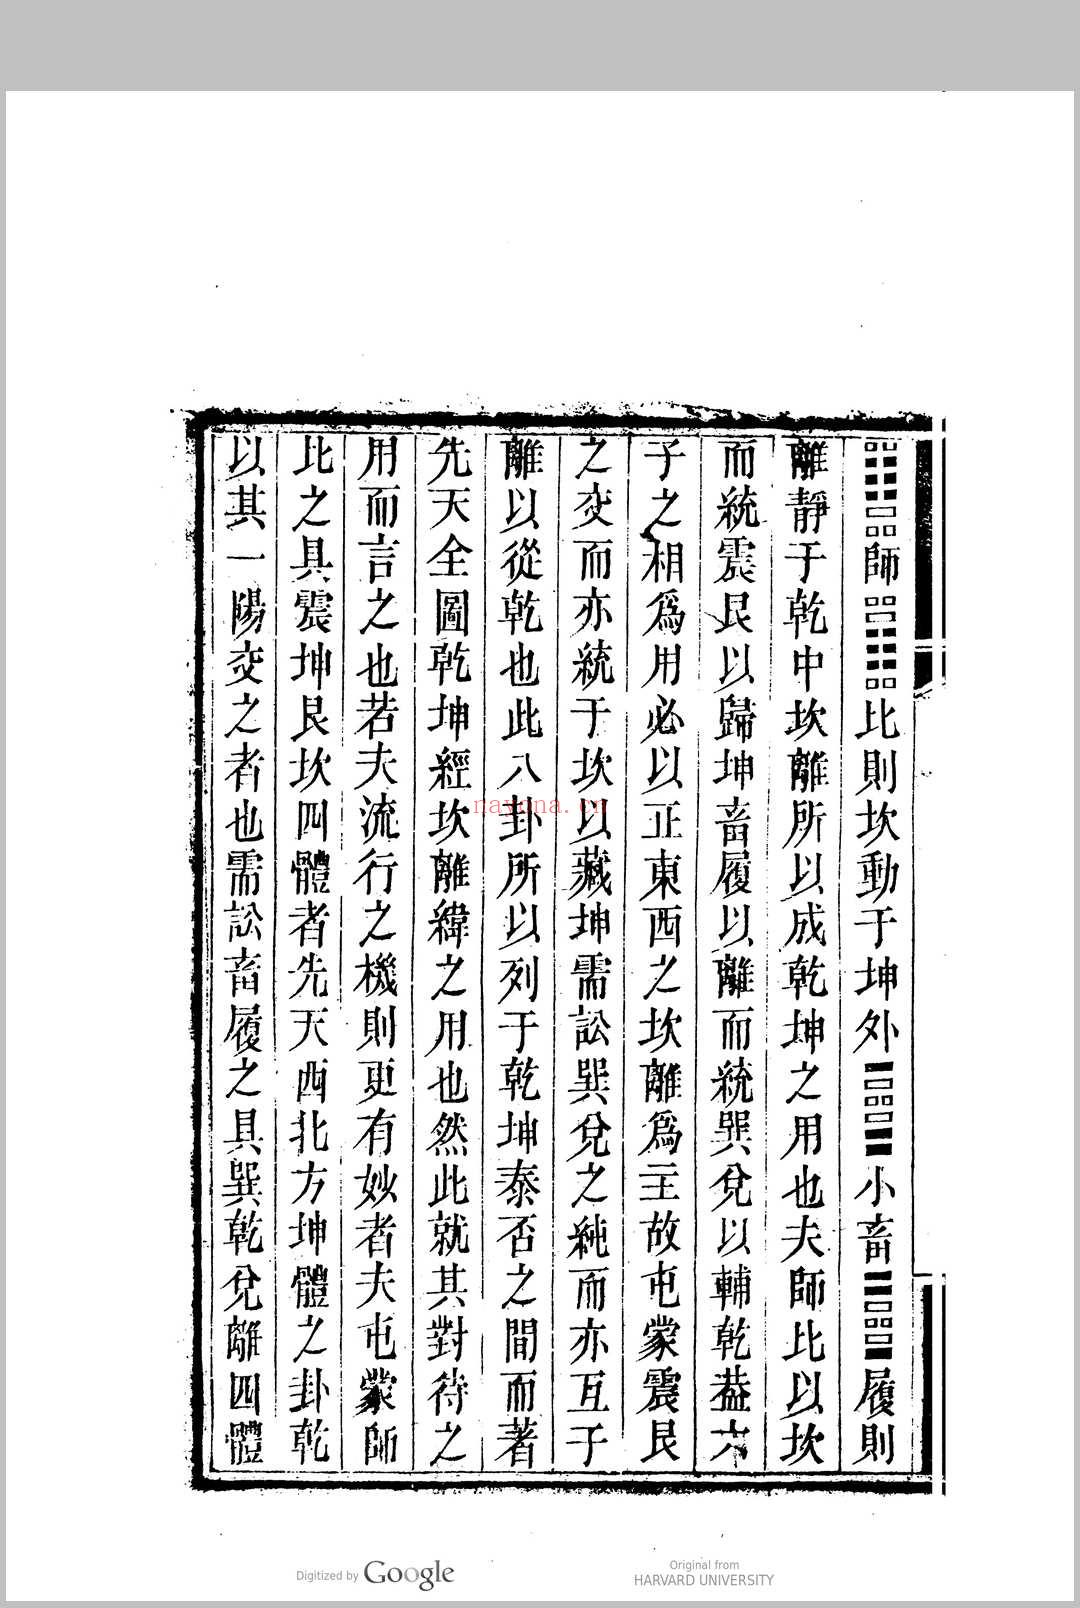 ䷆師䷇比則坎動于坤外䷈小畜䷉履則
離靜于乾中坎離所以成乾坤之用也夫師比以坎
而統震艮以歸坤畜履以離而統巽兌以輔乾葢六
子之相爲用必以正東西之坎離爲主故屯蒙震艮
之交而亦統于坎以藏坤需訟巽兌之純而亦互于
離以從乾也此八卦所以列于乾坤泰否之間而著
先天全圖乾坤經坎離緯之用也然此就其對待之
用而言之也若夫流行之機則更有妙者夫屯蒙師
比之具震坤艮坎四體者先天西北方坤體之卦乾
以其一陽交之者也需訟畜履之具巽乾兌離四體
nayona.cn
Digitized by Google
Original from
HARVARD UNIVERSITY